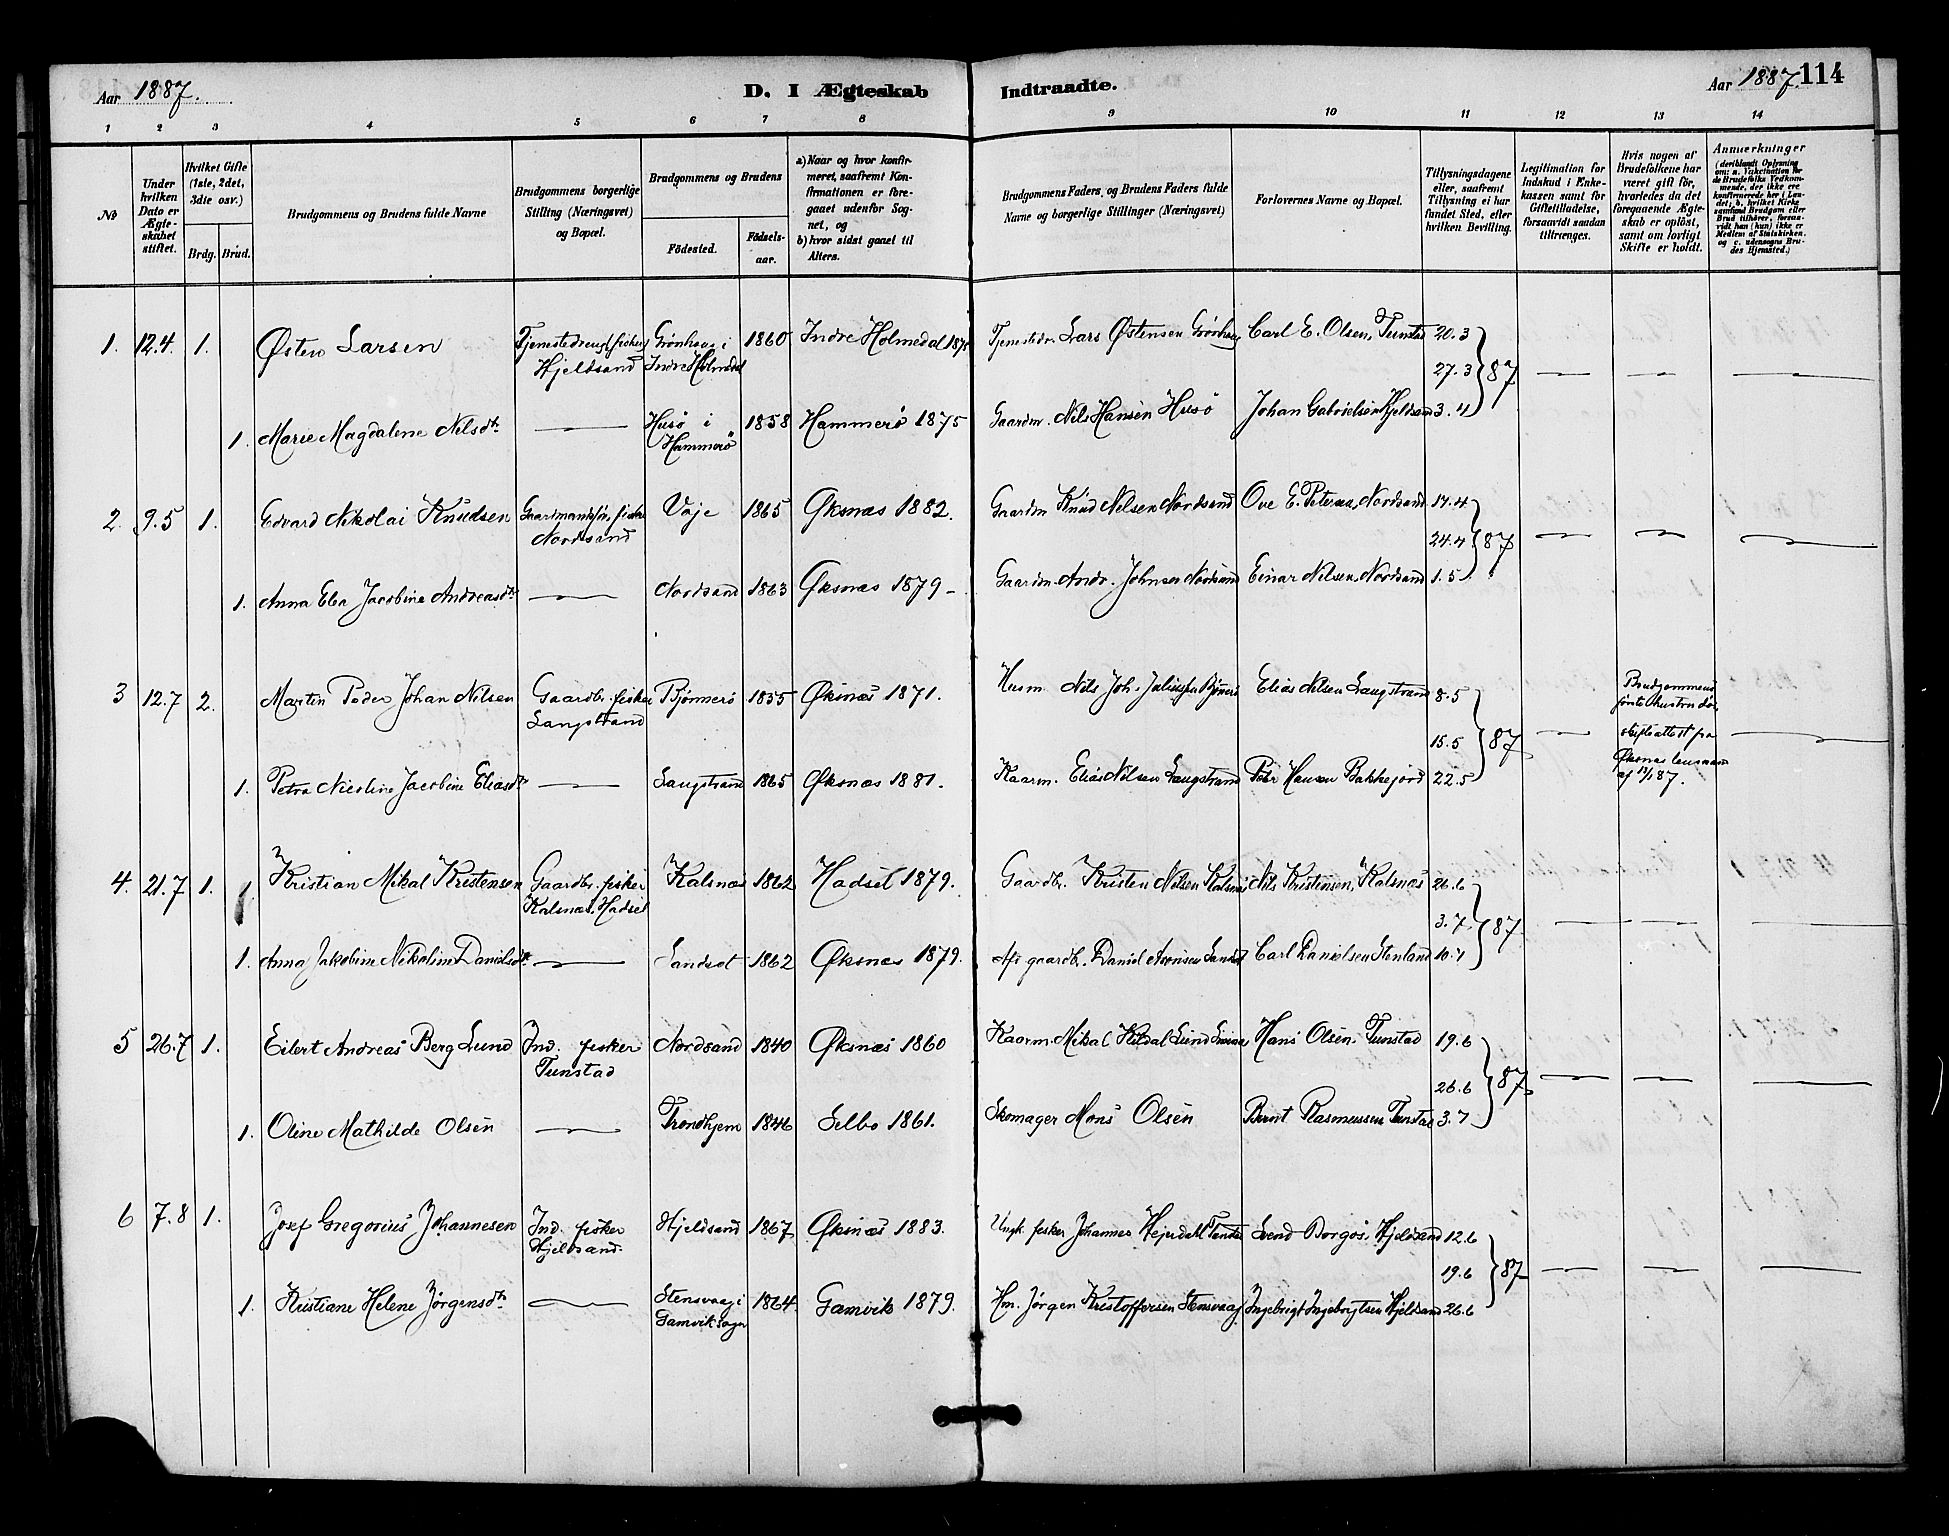 Aar 1887.
D. I Ægteskab
Indtraadte.
Aar 1887. 114
1 2 3 4 5 6 7 8 9 10 11 12 13 14
No
Under hvilken Dato er Ægte-skabet stiftet.
Hvilket Gifte (1ste, 2det, 3die osv.)
Brdg. Brud.
Brudgommens og Brudens fulde Navne
Brudgommens borgerlige Stilling (Næringsvei) og Bopæl.
Brudgommens og Brudens
Födested.
Födsels-aar.
a) Naar og hvor konfir-meret, saafremt Kon-firmationen er fore-gaaet udenfor Sog-net, og
b) hvor sidst gaaet til Alters.
Brudgommens Faders og Brudens Faders fulde Navne og borgerlige Stillinger (Næringsvei)
Forlovernes Navne og Bopæl.
Tillysningsdagene eller, saafremt Tillysning ei har fundet Sted, efter hvilken Bevilling.
Legitimation for Indskud i Enke-kassen samt for Giftetilladelse, forsaavidt saadan tiltrænges.
Hvis nogen af Brudefolkene har været gift för, hvorledes da det foregaaende Ægte-skab er oplöst, samt om lovligt Skifte er holdt.
Anmærkninger
1. 12.4. 1. Østen Larsen Tjenestedreng, fisker Hjeldsand Grönhaug i Indre Holmedal 1860 Indre Holmedal Lars Østensen Carl E. Olsen, Tunstad 20.3
27.3 } 87
1. Marie Magdalene Nilsdtr. — Husö i Hammerö 1858 Hammerö 1875 Gaardm. Nils Hansen Husö Johan Gabrielsen Hjeldsand 3.4
2. 9.5 1. Edvard Nikolai Knudsen Gaardmandssön, fisker Nordsand Vaje 1865 Øksnæs 1882. Gaardm Knud Nilsen Nordsand Ove E. Petersen, Nordsand 17.4
24.4 } 87
1. Anna Jacobine Andreasdtr. — Nordsand 1863 Øksnæs 1879 – Gaardm. Andr. Johnsen Nordsand Einar Nilsen, Nordsand 1.5
3 12.7 2. Martin Peder Johan Nilsen Gaardbr. fisker Langstrand Bjönnerö 1855 Øksnæs 1871. Husm. Nils Joh. Elias Nilsen Langstrand 8.5
Brudgommens förste hustru död,
15.5 } 87
skifteattest fra Øksnæs
1. Petra Nicoline Jacobine Eliasdtr — Langstrand 1865 Øksnæs 1881. Kaarm. Elias Nilsen Langstrand Peter Hansen Bakkejord 22.5
4. 21.7 1. Kristian Mikal Kristensen Gaardbr. fisker Kalsnæs, Hadsel Kalsnæs 1862 Hadsel 1879. Gaardbr. Kristen Nilsen Kalsnæs Nils Kristensen, Kalsnæs 26.6
3.7 } 87
1. Anna Jakobine Nikoline Danielsdtr. — Sandset 1862 Øksnæs 1879. gaardbr. Daniel Sandset Carl Danielsen Stenland 10.7
5 26.7 1. Eilert Andreas Berg Lund Ind. fisker Tunstad Nordsand 1840 Øksnæs 1860 Kaarm. Mikal Lund Hans Olsen. Tunstad 19.6
26.6 } 87
1. Oline Mathilde Olsen — Trondhjem 1846 Selbo 1861. Skomager Mons Olsen Bernt Rasmussen Tunstad 3.7
6 7.8 1. Josef Gregorius Johannesen Ind. fisker Hjeldsand. Hjeldsand 1867 Øksnæs 1883. Ungk. fisker Johannes Svend Borgos, Hjeldsand 12.6
19.6 } 87
1. Kristiane Helene Jörgensdtr. — Stensvaag i Gamvik sogn 1864 Gamvik 1879. Hm. Jörgen Kristoffersen Stensvaag Ingebrigt Ingebrigtsen Hjeldsand 26.6